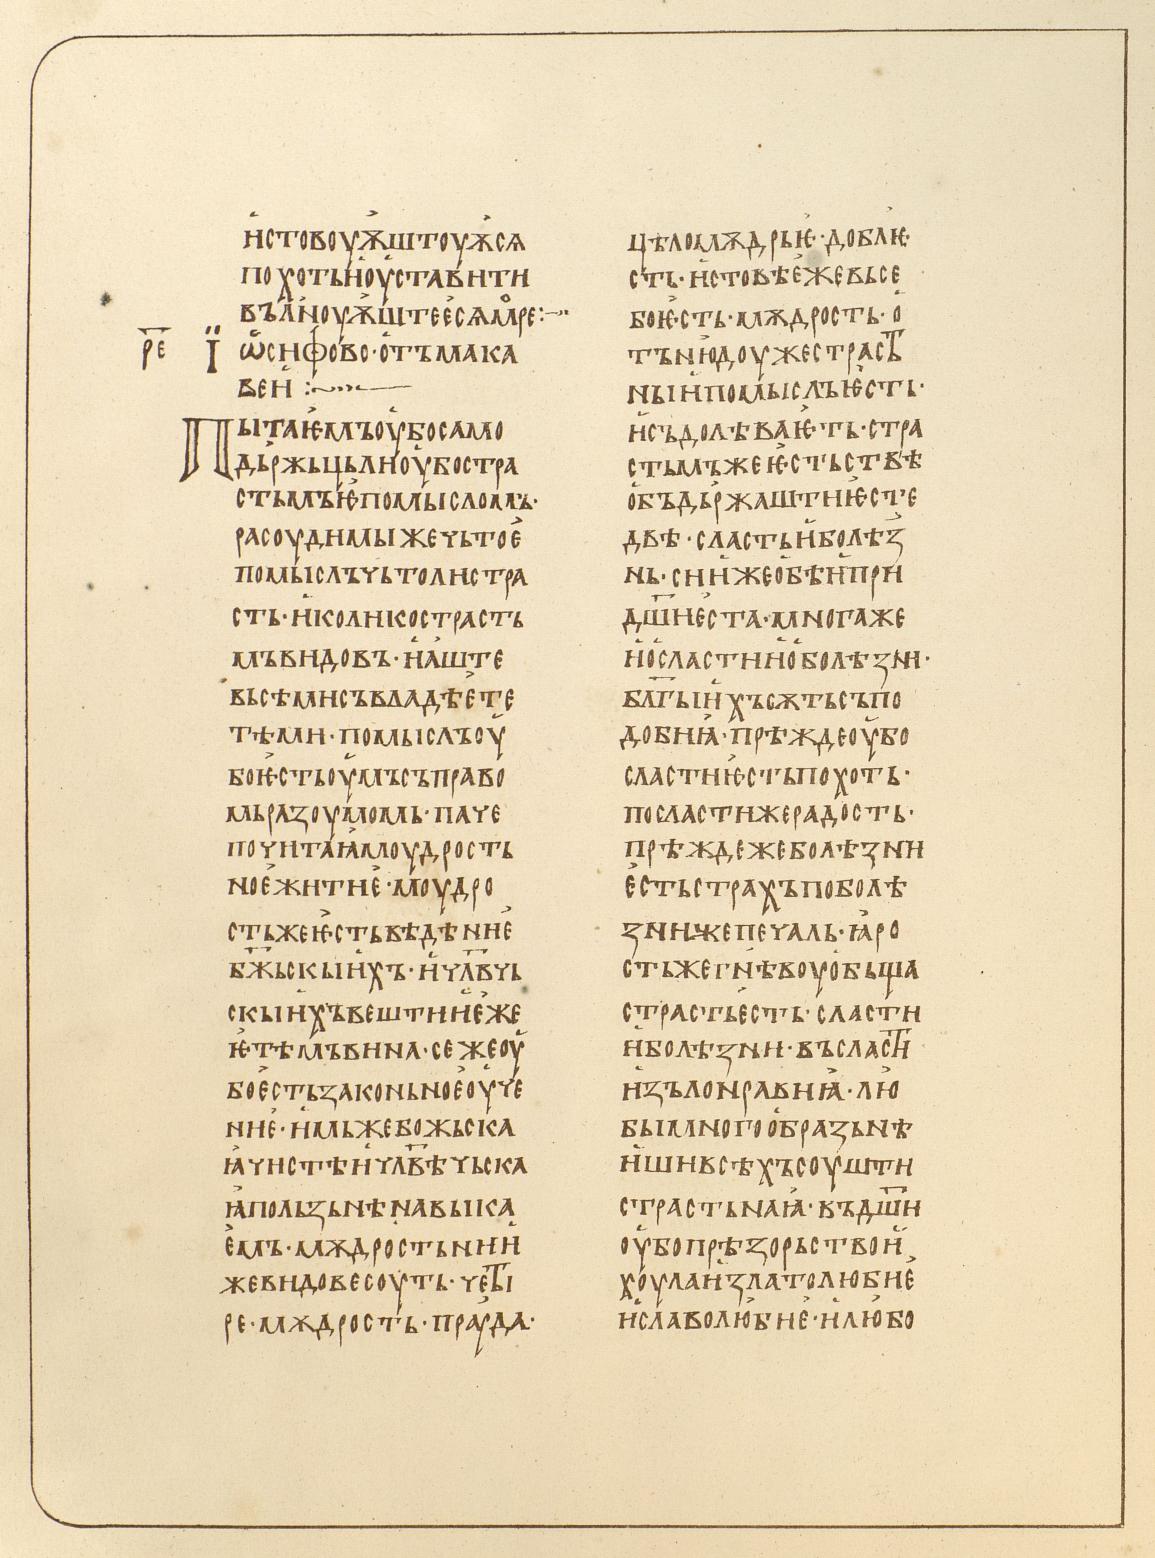 истовоуѫштоуѫсѧ
похотьноуставити
вълноуѫштеесѧморе:~
ре҃ ї ѡсифово·отъмака
веи :~
Пытаѥмъоубосамо
дьржьцьлиоубостра
стьмъѥпомысломъ·
расоудимыжечьтое
помыслъчьтолистра
сть·иколикострасть
мъвидовъ·иаште
вьсѣмисъвладѣете
тѣми·помыслъоу
боѥстьоумъсъправо
мьразоумомь·паче
почитаꙗмоудрость
ноежитие·моудро
стьжеѥстьвѣдѣние
бж҃ьскыихъ·ичл҃вчь
скыихъвештииеже
ѥтѣмъвина·сежеоу
боестьзаконьноеоуче
ние·имьжебожьска
ꙗчистѣичл҃вѣчьска
ꙗпользьнѣнавыка
емъ·мѫдростьнии
жевидовесоуть·четꙑ
ре·мѫдрость·правда·
цѣломѫдрьѥ·доблѥ
сть·истовѣежевьсе
боѥсть·мѫдрость·о
тънюдоужестрасть
ныипомыслъѥсть·
исъдолѣваѥть·стра
стьмъжеѥстьствѣ
объдьржаштиѥсте
двѣ·сластьиболѣз
нь·сиижеобѣипри
дш҃иеста·многаже
иосластииоболѣзни·
бл҃гыихъсѫтьсъпо
добиꙗ·прѣждеоубо
сластиѥстьпохоть·
посластижерадость·
прѣждежеболѣзни
естьстрахъпоболѣ
знижепечаль·ꙗро
стьжегнѣвоуобьща
страстьесть·сласти
иболѣзни·въсласти
изълонравиꙗ·лю
бымногообразьнѣ
ишивсѣхъсоушти
страстьнаꙗ·въдш҃и
оубопрѣзорьствои
хоулаизлатолюбие
иславолюбие·илюбо